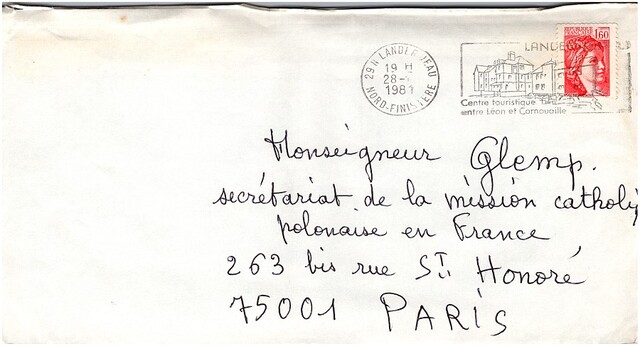 29 N LANDERNEAU
19 H
28-
198
NORD-FINISTÈRE
LANDE
Centre touristique
entre Léon et Cornouaille
1,60
Monseigneur Glemp.
secrétariat de la mission catholi
polonaise en France
263 bis rue St Honoré
75001 PARIS